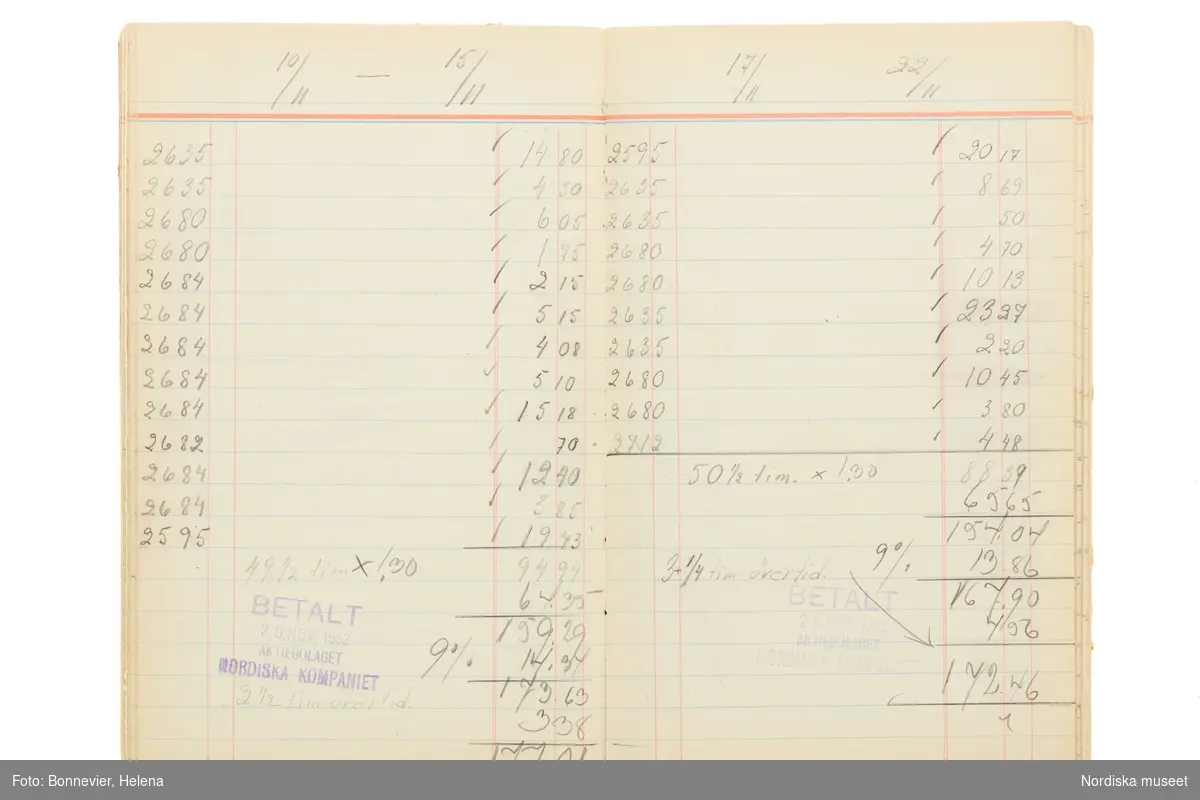 10/11 — 15/11
2635 14 80
2635 4 30
2680 6 05
2680 1 75
2684 2 15
2684 5 15
2684 4 08
2684 5 10
2684 15 18
2682 70
2684 12 40
2684 3 85
2595 19 43
49 1/2 tim × 1.30 94 94
64.35
BETALT
20 NOV. 1952
AKTIEBOLAGET
NORDISKA KOMPANIET
159.29
9% 14.34
173.63
2 1/2 tim övertid.
338
177.01
17/11 22/11
2595 20 17
2635 8 69
2635 50
2680 4 70
2680 10 13
2635 23 27
2635 2 20
2680 10 45
2680 3 80
2712 4 48
50 1/2 tim. × 1.30 88 39
65 65
154.04
9% 13.86
3 1/4 tim övertid.
167.90
BETALT
AKTIEBOLAGET
NORDISKA
4 56
172.46
Foto: Bonnevier, Helena
Nordiska museet